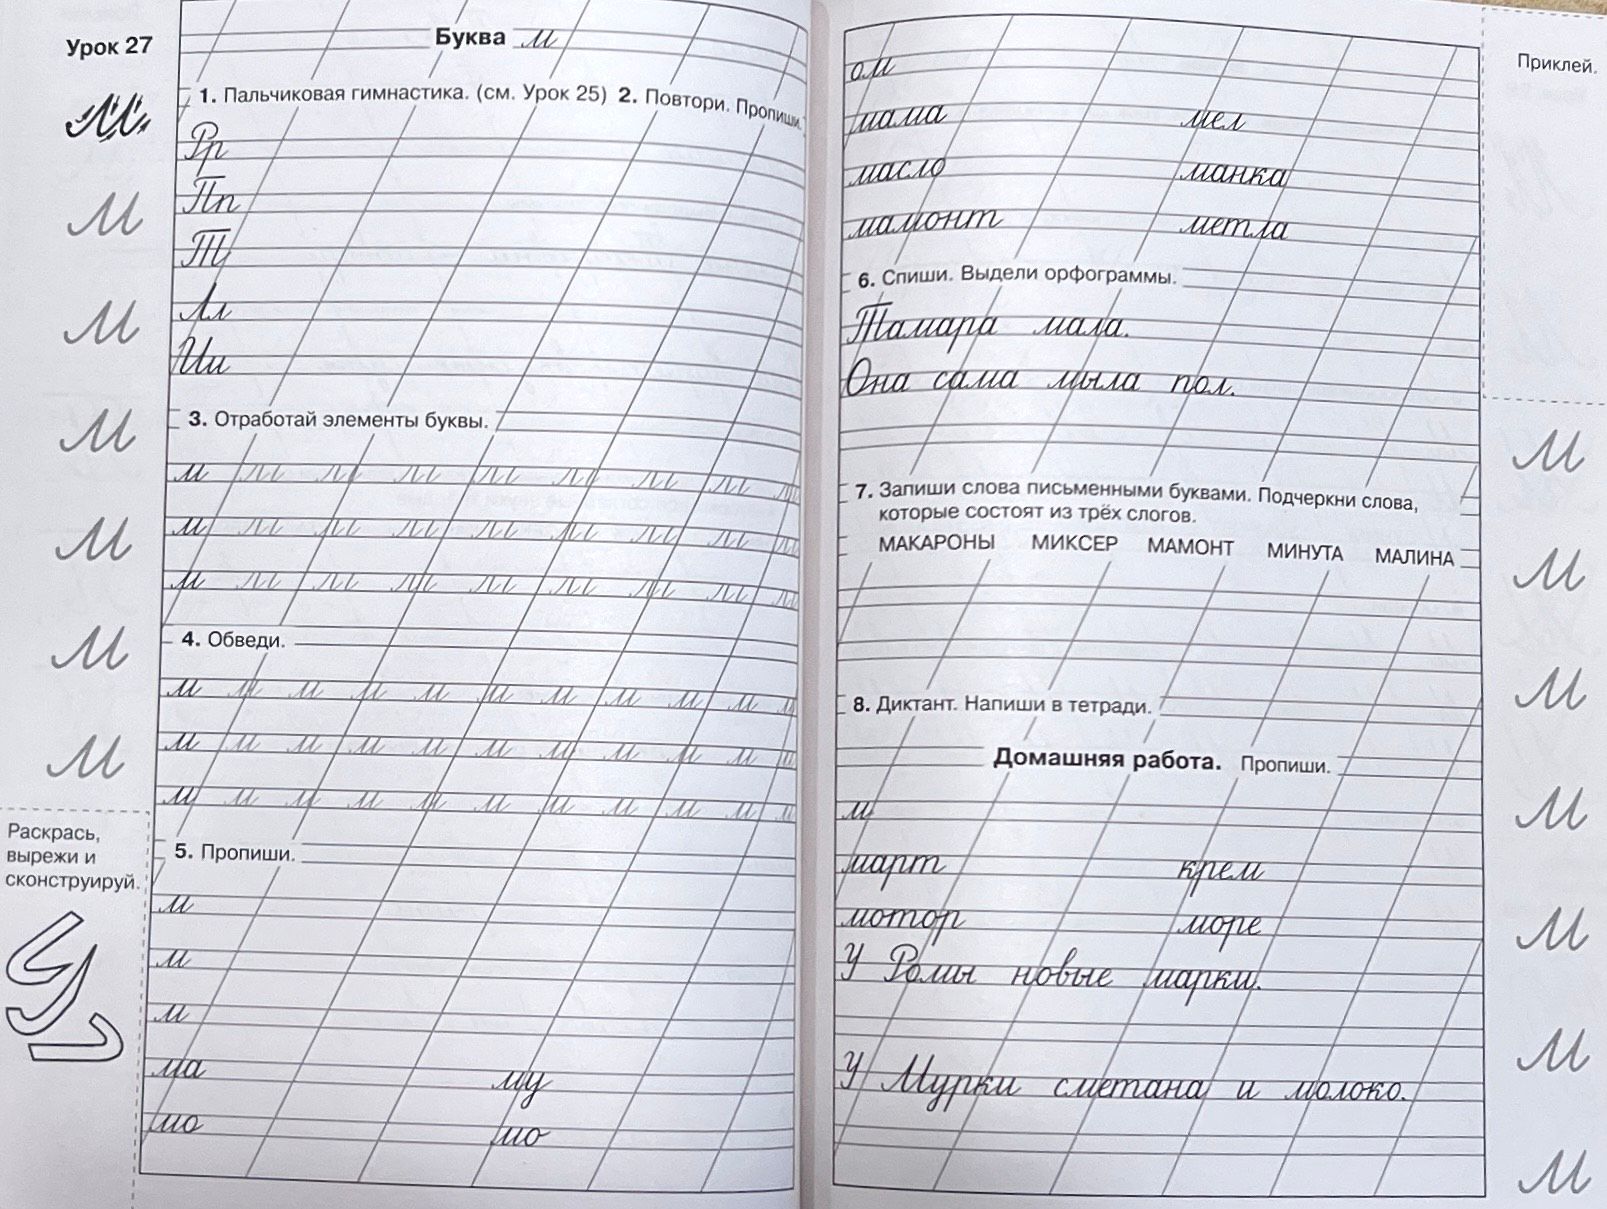 Урок 27
Буква м
1. Пальчиковая гимнастика. (см. Урок 25) 2. Повтори. Пропиши.
Рр
Пп
Т
Лл
Ии
3. Отработай элементы буквы.
м
м
м
4. Обведи.
м м м м м м м м м м м
м м м м м м м м м м м
м м м м м м м м м м м
5. Пропиши.
м
м
м
ма му
мо мо
м
м
м
м
м
м
м
Раскрась,
вырежи и
сконструируй.
ом
мама мел
масло манка
мамонт метла
6. Спиши. Выдели орфограммы.
Тамара мала.
Она сама мыла пол.
7. Запиши слова письменными буквами. Подчеркни слова,
которые состоят из трёх слогов.
МАКАРОНЫ МИКСЕР МАМОНТ МИНУТА МАЛИНА
8. Диктант. Напиши в тетради.
Домашняя работа. Пропиши.
м
март крем
мотор море
У Ромы новые марки.
У Мурки сметана и молоко.
Приклей.
м
м
м
м
м
м
м